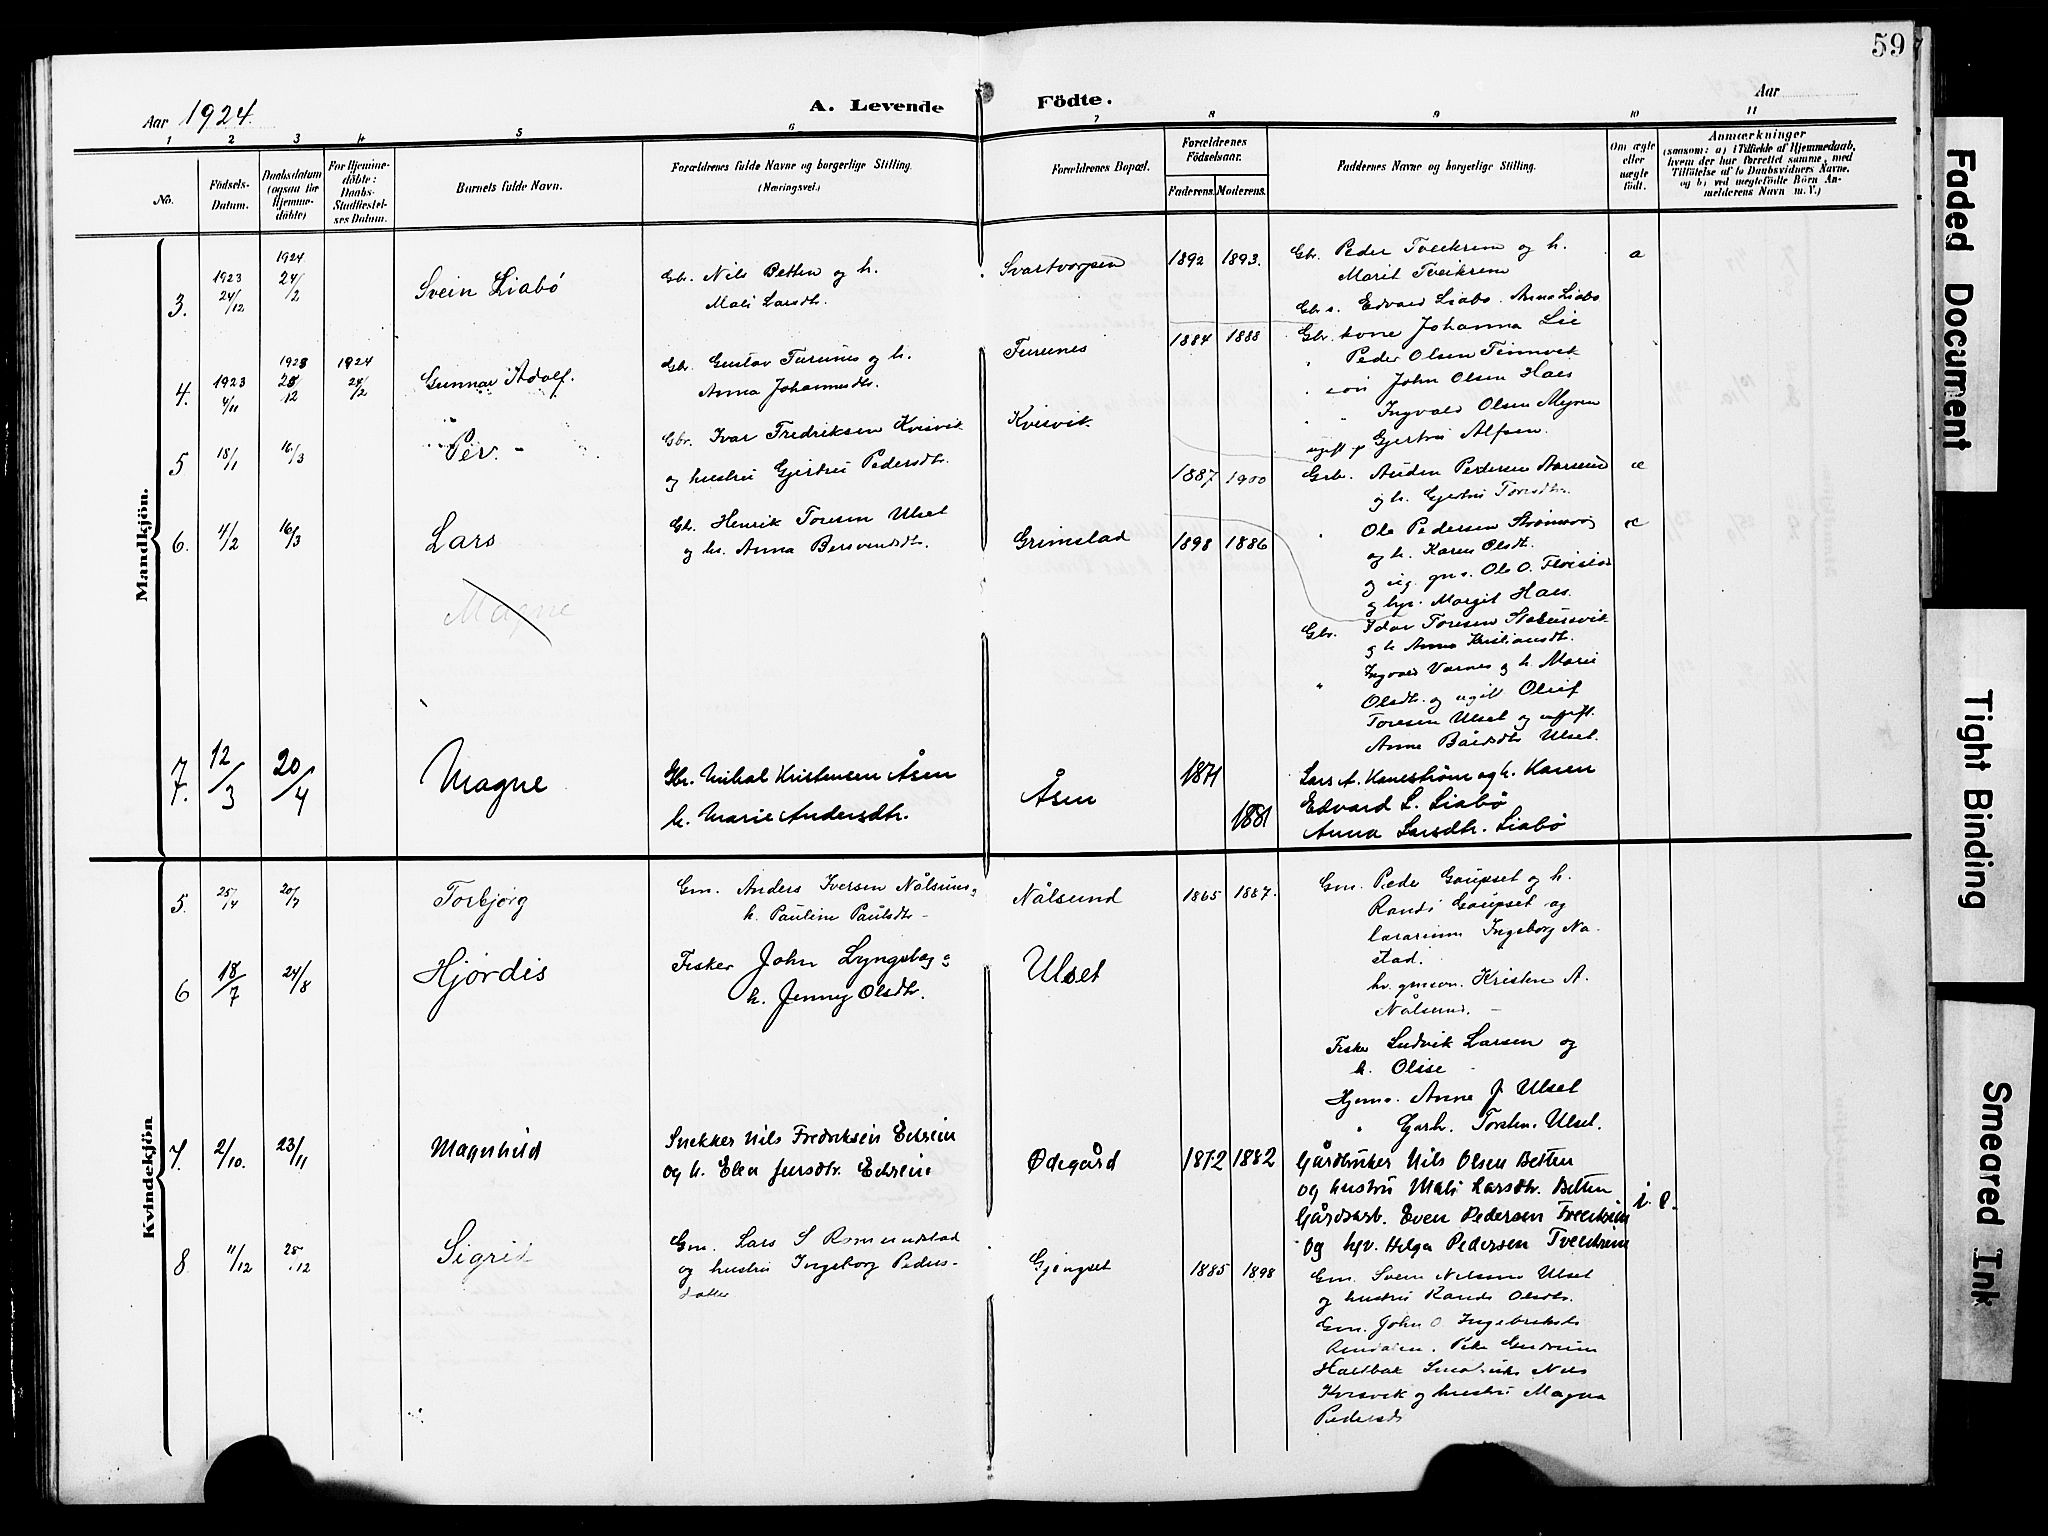 59
Aar 1924.
A. Levende Födte.
Aar
1 2 3 4 5 6 7 8 9 10 11
No.
Födsels-Datum.
Daabsdatum (ogsaa for Hjemme-döbte)
For Hjemme-döbte: Daabs-Stadfæstel-ses Datum.
Barnets fulde Navn.
Forældrenes fulde Navne og borgerlige Stilling.
(Næringsvei.)
Forældrenes Bopæl.
Forældrenes Födselsaar.
Faderens. Moderens.
Faddernes Navne og borgerlige Stilling.
Om ægte eller uægte födt.
Anmærkninger
(saasom: a) i Tilfælde af Hjemmedaab, hvem der har forrettet samme, med Tilföielse af to Daabsvidners Navne, og b) ved uægtefödte Börn An-melderens Navn m. V.)
Mandkjön.
3. 1923 24/12 1924 24/2 Svein Liabö
Gbr. Nils Betten og h.
Mali Larsdtr.
Svartvorpen 1892 1893.
Gbr. Peder Tveekrem og h.
Marit Tveekrem
Gbrs. Edvard Liabö. Anna Liabö
a
4. 1923 4/11 1923 12 1924 24/2 Gunnar Adolf.
Gbr. Gustav Furunes og h.
Anna Johannesdtr.
Furunes 1884 1888
Gbr. kone Johanna Lie
" Peder Olsen Tennvik
" John Olsen Haes
" Ingvald Olsen Myren
ugift p Gjertru Alfsen.
5 18/1 16/3 Per. -
Gbr. Ivar Fredriksen Kvisvik
og hustru Gjertru Pedersdtr.
Kvisvik 1887 1900
Gbr. Auden Pedersen Aarsund
og h. Gjertru Toresdtr.
æ
6. 4/2 16/3 Lars
Gb. Henrik Toresen Ulset
og h. Anna Bersvendsdtr.
Grimstad 1898 1886
" Ole Pedersen Strömsvig
og h. Karen Olsdt.
og ug. gms. Ole O. Fleistad
og hyr. Margit Haes.
Gbr. Idar Toresen
og h Anna Kristiansdtr.
" Ingvald Varnes og h. Marie
Olsdtr. og ugift Oluf
Toresen Ulset og ugift.
Anne Bårdsdtr Ulset.
æ
Magne
7 7. 12/3 20/4 Magne
Gbr. Mikal Kristensen Åsen
h. Marie Andersdtr.
Åsen 1871 1881
Lars A. Kanestrøm og h. Karen
Edvard L. Liabö
Anna Larsdtr. Liabö
Kvindekjön
5. 25/4 20/7 Torbjörg
Gm. Anders Iversen Nålsund og
h. Pauline Paulsdtr -
Nålsund 1865 1887.
Gm. Peder Gaupset og h.
Randi Gaupset og
lærerinne Ingeborg Na-
stad.
hv. gmsøn. Kristen A.
Nålsund. -
6 18/7 24/8 Hjördis
Fisker John Lyngstad og
h. Jenny Olsdtr.
Ulset
Fisker Ludvik Larsen og
h. Olise -
Hjems. Anne J Ulset
" Garb. Torsten Ulset.
7. 2/10. 23/11 Magnhild
Snekker Nils Fredriksen Eckrem
og h. Elen Jensdtr. Eckrem
Ødegård 1872 1882
Gårdbruker Nils Olsen Betten
og hustru Mali Larsdtr. Betten
Gårdsarb. Even Pedersen Tveekrem
og hjv. Helga Pedersen Tveekrem
i. e.
8 11/12 25/12 Sigrid
Gm. Lars S Romundstad
og hustru Ingeborg Peders-
datter
Gjengset 1885 1898
Gm. Svein Nilssen Ulset
og hustru Randi Olsdtr.
Gm. John O Ingebrikts
Romdalen. Pike Gudrun
Haltbak Småbruker Nils
Kvisvik og hustru Magna
Pedersdtr
Faded Document
Tight Binding
Smeared Ink